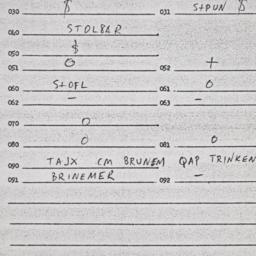 030 $ 031 S+PUN $
040 STOLBAR
050 $
051 O 052 +
050 S+OFL 061 O
062 – 063 –
070 O
080 O 081 O
090 TAJX CM BRUNEM QAP TRINKEN
091 BRINEMER 092 –